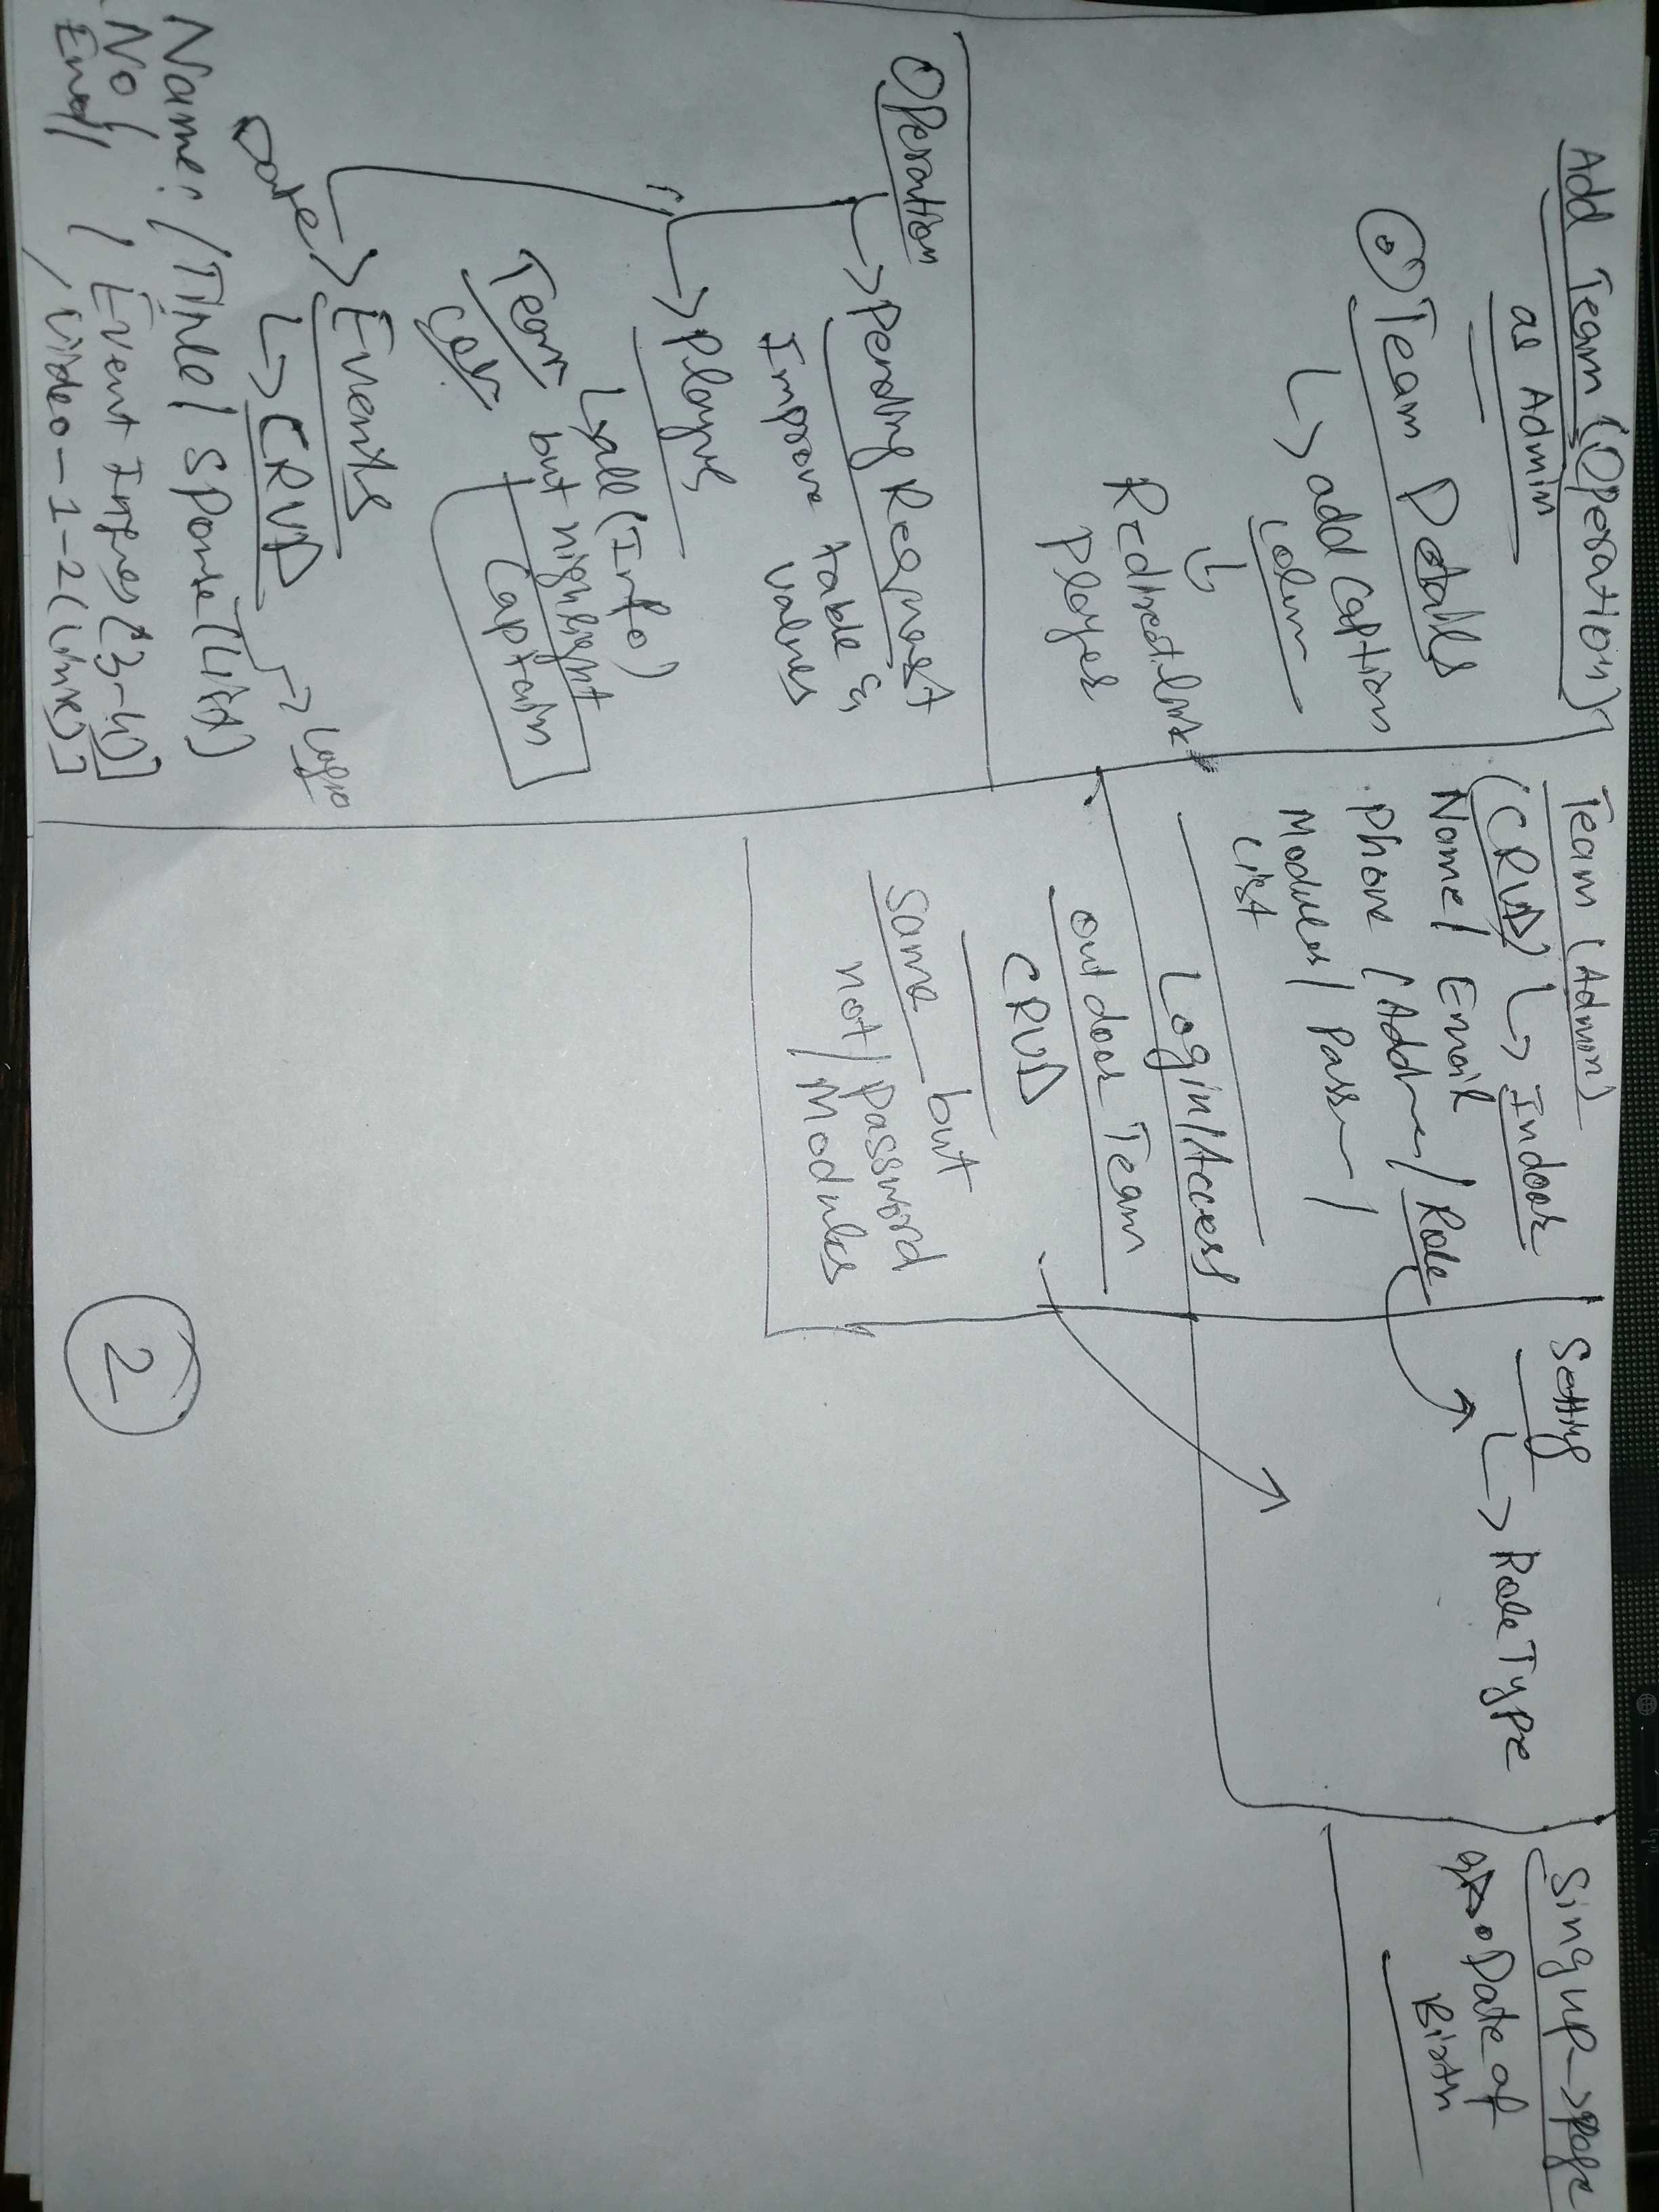 Add Team (Operation)
as Admin
Team Details
add Caption
colum
Redirect link
Player
Operation
Pending Request
Improve table &
values
Players
all (Info)
but highlight
Captain
Team
Events
Date
CRUD
Logo
Name: / Time / Sponse (List)
No /
Event Images (3-4)]
/ Video - 1-2 (link)]
Team (Admin)
(CRUD) Indoor
Name / Email
Phone / Addre / Role
Modules / Pass /
List
Login/Access
outdoor Team
CRUD
same but
not / Password
Modules
Setting
Role Type
Singup page
Date of
Birth
2